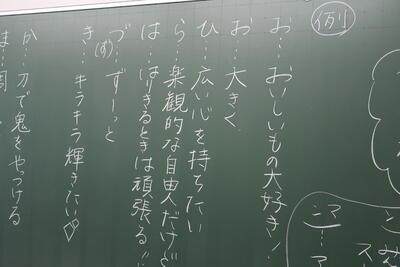 例
お…おいしいもの大好き!
お…大きく
ひ…広い心を持ちたい
ら…楽観的な自由人だけど
は…はりきるときは頑張る!!
づ(ず)…ずーっと
き…キラキラ輝きたい♡♡
か…刀で鬼をやっつける